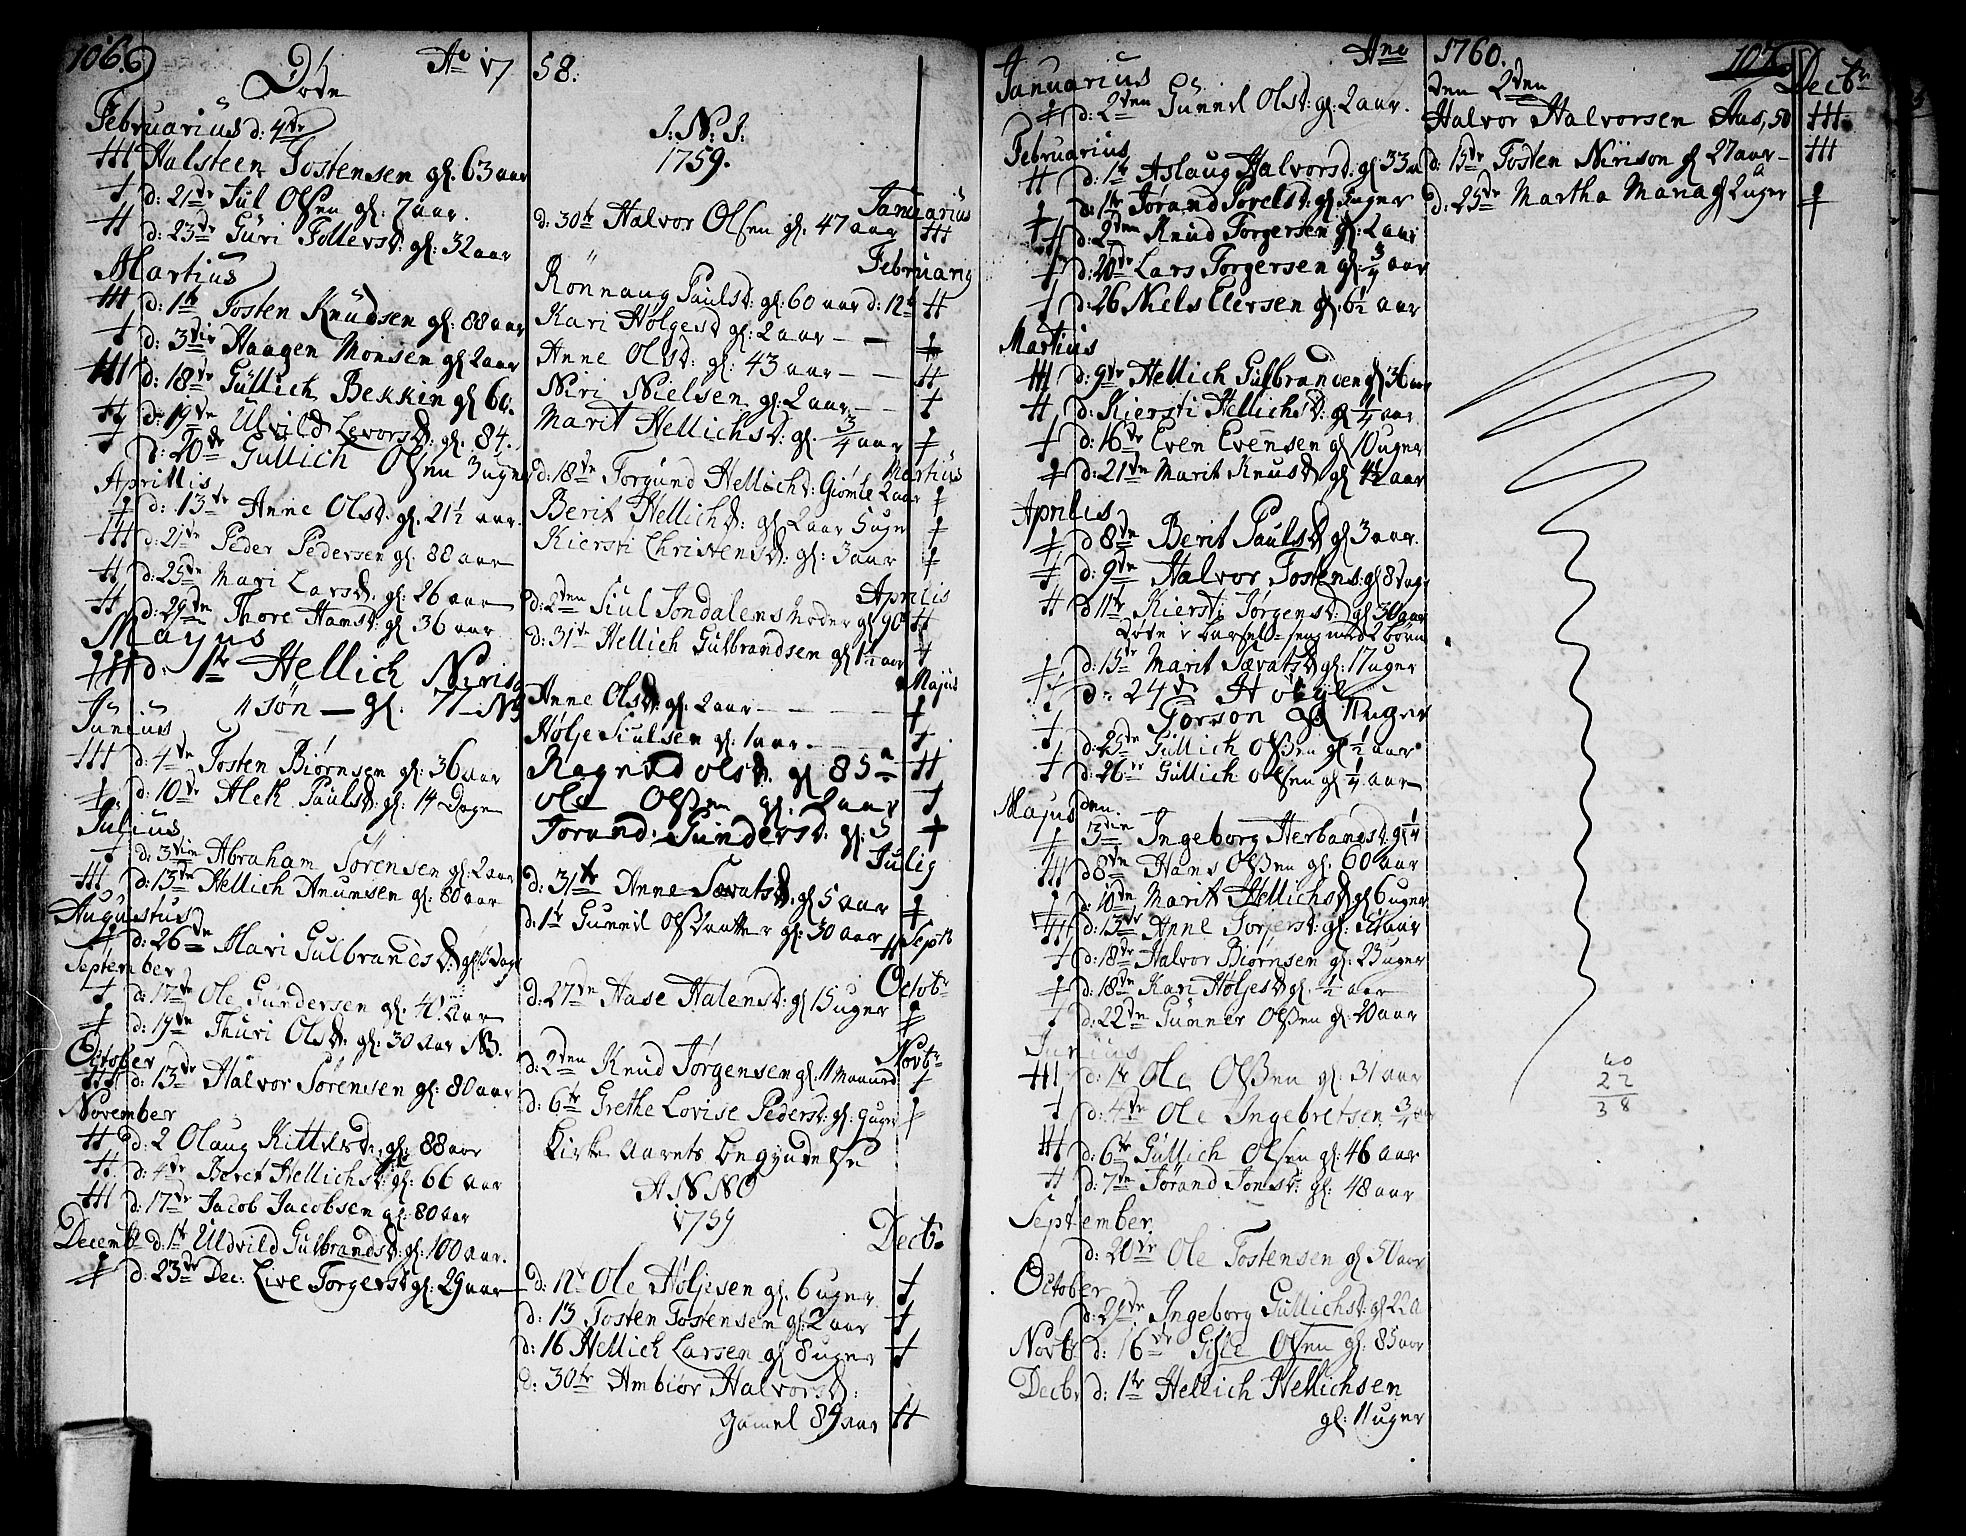 106.
Døde
Ao 17
Februarius d: 4de
Halsteen Tostensen gl. 63 aar
d: 21de Jul Olsen gl: 7 aar.
d: 23de Guri Tollersd: gl: 32 aar
Martius
d: 1te Tosten Knudsen gl: 88 aar
d: 3die Haagen Monsen gl 2 aar
d: 18de Gullich Bekkin gl 60.
d: 19de Ulvild Levorsd: gl. 84.
d: 20de Gullich Olsen 3 uger
Aprillis
d: 13de Anne Olsd: gl. 21½ aar.
d: 21de Peder Pedersen gl: 80 aar
d: 25de Mari Larsd: gl: 26 aar
d: 29de Thore Hansd: gl 36 aar
Majus
d: 1te Hellich Niris
søn — gl. 77
Junius
d: 4de Tosten Biørnsen gl: 36 aar
d: 10de Alek Paulsd: gl: 14 Dage
Julius
d: 3die Abraham Sørensen gl: 2 aar
d: 13de Hellich Anunsen gl: 80 aar
Augustus
d: 26de Mari Gulbrandsd: gl: Dage
September
d: 17de Ole Gundersen gl. 4 Aar
d: 19de Thuri Olsd: gl: 30 Aar NB.
October
d: 13de Halvor Sørensen gl: 80 aar
November
d: 2 Olaug Kittelsd: gl: 88 aar
d: 4de Beret Hellichsd: gl: 66 aar
d: 17de Jacob Jacobsen gl: 80 aar
Decemb d: 1te Uldvild Gulbrandsd: gl: 100 aar.
d: 23de Dec: Live Torgersd: gl: 29 aar
58.
I: N: I:
1759.
Januarius
d: 30te Halvor Olsen gl. 47 aar
Februarij
Rønnaug Paulsd: gl: 60 aar d: 12te
Kari Holgesd gl: 2 aar — —
Anne Olsd: gl: 43 aar — —
Niri Nielsen gl: 2 aar —
Marit Hellichsd: gl. ¾ aar
Martius
d: 18de Torgund Hellichd: Giømle 2 aar
Berit Hellichd: gl 2 aar 5 uger
Kiersti Christensd: gl: 3 aar
Aprilis
d: 2den Siul Jondalens moder gl 90
d: 31te Hellich Gulbrandsen gl 1½ aar
Majus
Anne Olsd: gl: 2 aar — — —
Holje Siulsen gl: 1 aar.
Ragnild Olsd. gl 85 a
Ole Olsen gl. 2 aar
Torand: Gundersd: gl: 5
Julij
d: 31te Anne Tovatsd: gl 5 aar
d: 1te Gunnil Olsdaatter gl: 30 aar
Septb
Octobr
d: 27de Aase Halensd: gl 15 uger
Novbr
d: 2den Knud Jørgensen gl. 11 maaned
d: 6te Grethe Lovise Pedersd: gl: 9 uger
Kirke Aarets begyndelse
ANNO
1759
Decb.
d: 12te Ole Holjesen gl. 6 uger
d: 13 Tosten Tostensen gl: 2 aar
d: 16 Hellich Larsen gl 8 uger
d: 30te Ambiør Halvorsd:
gamel 89 aar
Ano
Januarius
d: 2den Gunnil Olsd: gl: 2 aar.
Februarius
d: 1te Aslaug Halvorsd: gl 33 a
d: 1te Jørand Torelsd: gl uger
d: 2den Knud Torgersen gl: 2 aar
d: 20de Lars Torgersen gl: ¾ aar
d: 26 Niels Elersen gl: 6½ aar
Martius
d: 9de Hellich Gulbrandsen gl 36 aar
d: Kiersti Hellichsd: gl ¼ aar
d: 16de Even Evensen gl 10 uger
d: 21de Marit Knudsd gl 4½ aar
Aprilis
d 8de Berit Paulsd gl 3 aar.
d: 9de Halvor Tostens: gl 8 Dage
d 11te Kiersti Jørgensd: gl 30 aar
døde i barsel-seng med 2 børn
d: 15de Marit Tovatsd gl: 17 uger
d: 24de
Torson gl 11 uger
d: 25de Gullich Olsen gl ½ aar
d: 26de Gullich Olsen gl ¼ aar
Majus den
3die Ingeborg Herbandsd: gl ¼
d 8de Hans Olsen gl: 60 aar
d: 10de Marit Hellichsd gl 6 uger
d: 13de Anne Torjersd: gl: aar
d: 18de Halvor Biørnsen gl: 23 uger
d: 18de Kari Holjesd: gl. ½ aar
d: 22de Gunner Olsen gl: 20 aar
Junius
d: 1te Ole Olsen gl: 31 aar
d: 4de Ole Ingebretsen, ¾ aar
d: 6te Gullich Olsen gl: 46 aar
d: 7de Jørand Jonsd: gl: 48 aar
September
d: 20de Ole Tostensen gl 50 aar
October
d: 21de Ingeborg Gullichsd: gl 22 a
Novb: d: 16de Gisle Olsen gl: 85 aar
Decbr d: 1te Hellich Hellichsen
gl: 11 uger
1760.
107.
den 2den
Decbr
Halvor Halvorsen Aas, 50
d: 15de Tosten Nirison gl 27 aar
d: 25de Martha Maria gl 2 uger
60
22
38